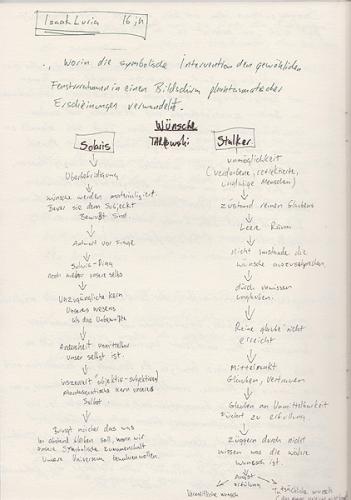 Isaak Luria 16 jh
., worin die symbolische Intervention den gewöhnlichen
Fensterrahmen in einen Bildschirm phantasmatischer
Erscheinungen verwandelt.
Wünsche
TARKOWSKI
Solaris
Überbefriedigung
wünsche werden materialisiert.
Bevor sie dem Subjekt
Bewußt sind.
Antwort vor Frage
Solaris-Ding
noch weiter unsere selbs
Unzugängliche Kern
Unseres wesens
als das Unbewußte
Anderheit unmittelbar
unser selbst ist.
"objektiv-subjektiven"
phantasmatische Kern unseres
Selbst.
Bringt näher das was
in abstand bleiben soll, wenn wir
unsere Symbolische
Unsere Universum
Stalker
unmöglichkeit
(verdorbene, reflektierte,
unwürdige Menschen)
zustand reinen Glaubens
Leere Raum
nicht imstande die
wünsche auszusprechen.
durch unwissen
unglauben.
Reine glaube nicht
erreicht
Mittelpunkt
Glauben, Vertrauen
Glauben an Unmittelbarkeit
führt zu erfüllung
Zögern durch nicht
wissen was die wahre
wunsch ist.
angst
erfüllung
Vermittelte wunsch
tatsächliche wunsch